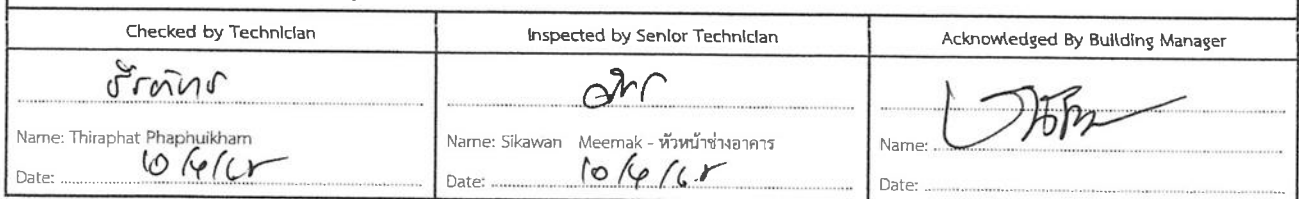 Checked by Technician
Inspected by Senior Technician
Acknowledged By Building Manager
Name: Thiraphat Phaphuikham
Name: Sikawan Meemak - หัวหน้าช่างอาคาร
Name:
Date: 10/4/68
Date: 10/4/68
Date: